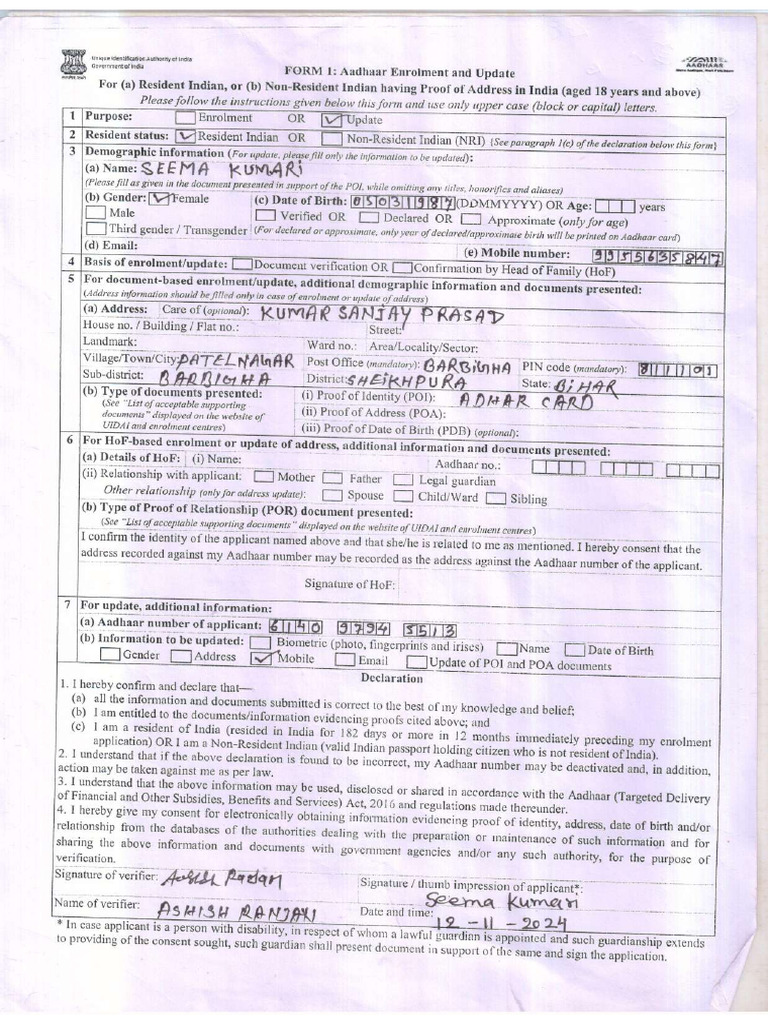 Unique Identification Authority of India
Government of India
AADHAAR
FORM 1: Aadhaar Enrolment and Update
For (a) Resident Indian, or (b) Non-Resident Indian having Proof of Address in India (aged 18 years and above)
Please follow the instructions given below this form and use only upper case (block or capital) letters.
1 Purpose: Enrolment OR Update
2 Resident status: Resident Indian OR Non-Resident Indian (NRI) {See paragraph 1(c) of the declaration below this form}
3 Demographic information (For update, please fill only the information to be updated):
(a) Name: SEEMA KUMARI
(Please fill as given in the document presented in support of the POI, while omitting any titles, honorifics and aliases)
(b) Gender: Female (c) Date of Birth: 05031987 (DDMMYYYY) OR Age: years
Male Verified OR Declared OR Approximate (only for age)
Third gender / Transgender (For declared or approximate, only year of declared/approximate birth will be printed on Aadhaar card)
(d) Email: (e) Mobile number: 9955635847
4 Basis of enrolment/update: Document verification OR Confirmation by Head of Family (HoF)
5 For document-based enrolment/update, additional demographic information and documents presented:
(Address information should be filled only in case of enrolment or update of address)
(a) Address: Care of (optional): KUMAR SANJAY PRASAD
House no. / Building / Flat no.: Street:
Landmark: Ward no.: Area/Locality/Sector:
Village/Town/City: PATELNAGAR Post Office (mandatory): BARBIGHA PIN code (mandatory): 811101
Sub-district: BARBIGHA District: SHEIKHPURA State: BIHAR
(b) Type of documents presented: (i) Proof of Identity (POI): ADHAR CARD
(See "List of acceptable supporting (ii) Proof of Address (POA):
documents" displayed on the website of
UIDAI and enrolment centres) (iii) Proof of Date of Birth (PDB) (optional):
6 For HoF-based enrolment or update of address, additional information and documents presented:
(a) Details of HoF: (i) Name: Aadhaar no.:
(ii) Relationship with applicant: Mother Father Legal guardian
Other relationship (only for address update): Spouse Child/Ward Sibling
(b) Type of Proof of Relationship (POR) document presented:
(See "List of acceptable supporting documents" displayed on the website of UIDAI and enrolment centres)
I confirm the identity of the applicant named above and that she/he is related to me as mentioned. I hereby consent that the
address recorded against my Aadhaar number may be recorded as the address against the Aadhaar number of the applicant.
Signature of HoF:
7 For update, additional information:
(a) Aadhaar number of applicant: 6140 9794 5513
(b) Information to be updated: Biometric (photo, fingerprints and irises) Name Date of Birth
Gender Address Mobile Email Update of POI and POA documents
Declaration
1. I hereby confirm and declare that—
(a) all the information and documents submitted is correct to the best of my knowledge and belief;
(b) I am entitled to the documents/information evidencing proofs cited above; and
(c) I am a resident of India (resided in India for 182 days or more in 12 months immediately preceding my enrolment
application) OR I am a Non-Resident Indian (valid Indian passport holding citizen who is not resident of India).
2. I understand that if the above declaration is found to be incorrect, my Aadhaar number may be deactivated and, in addition,
action may be taken against me as per law.
3. I understand that the above information may be used, disclosed or shared in accordance with the Aadhaar (Targeted Delivery
of Financial and Other Subsidies, Benefits and Services) Act, 2016 and regulations made thereunder.
4. I hereby give my consent for electronically obtaining information evidencing proof of identity, address, date of birth and/or
relationship from the databases of the authorities dealing with the preparation or maintenance of such information and for
sharing the above information and documents with government agencies and/or any such authority, for the purpose of
verification.
Signature of verifier: Ashish Ranjan Signature / thumb impression of applicant*:
Seema Kumari
Name of verifier: ASHISH RANJAN Date and time: 12-11-2024
* In case applicant is a person with disability, in respect of whom a lawful guardian is appointed and such guardianship extends
to providing of the consent sought, such guardian shall present document in support of the same and sign the application.